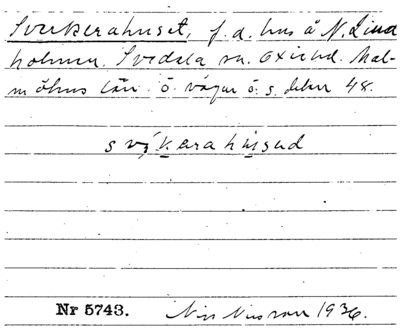 Sverkerahuset, f.d. hus å N. Lind
holmen. Svedala sn. Oxie hd. Mal-
möhus län. ö. vägen ö. s. delen 48.
svȩkerahu̱sәd
Nr 5743. Nils Nilsson 1936.